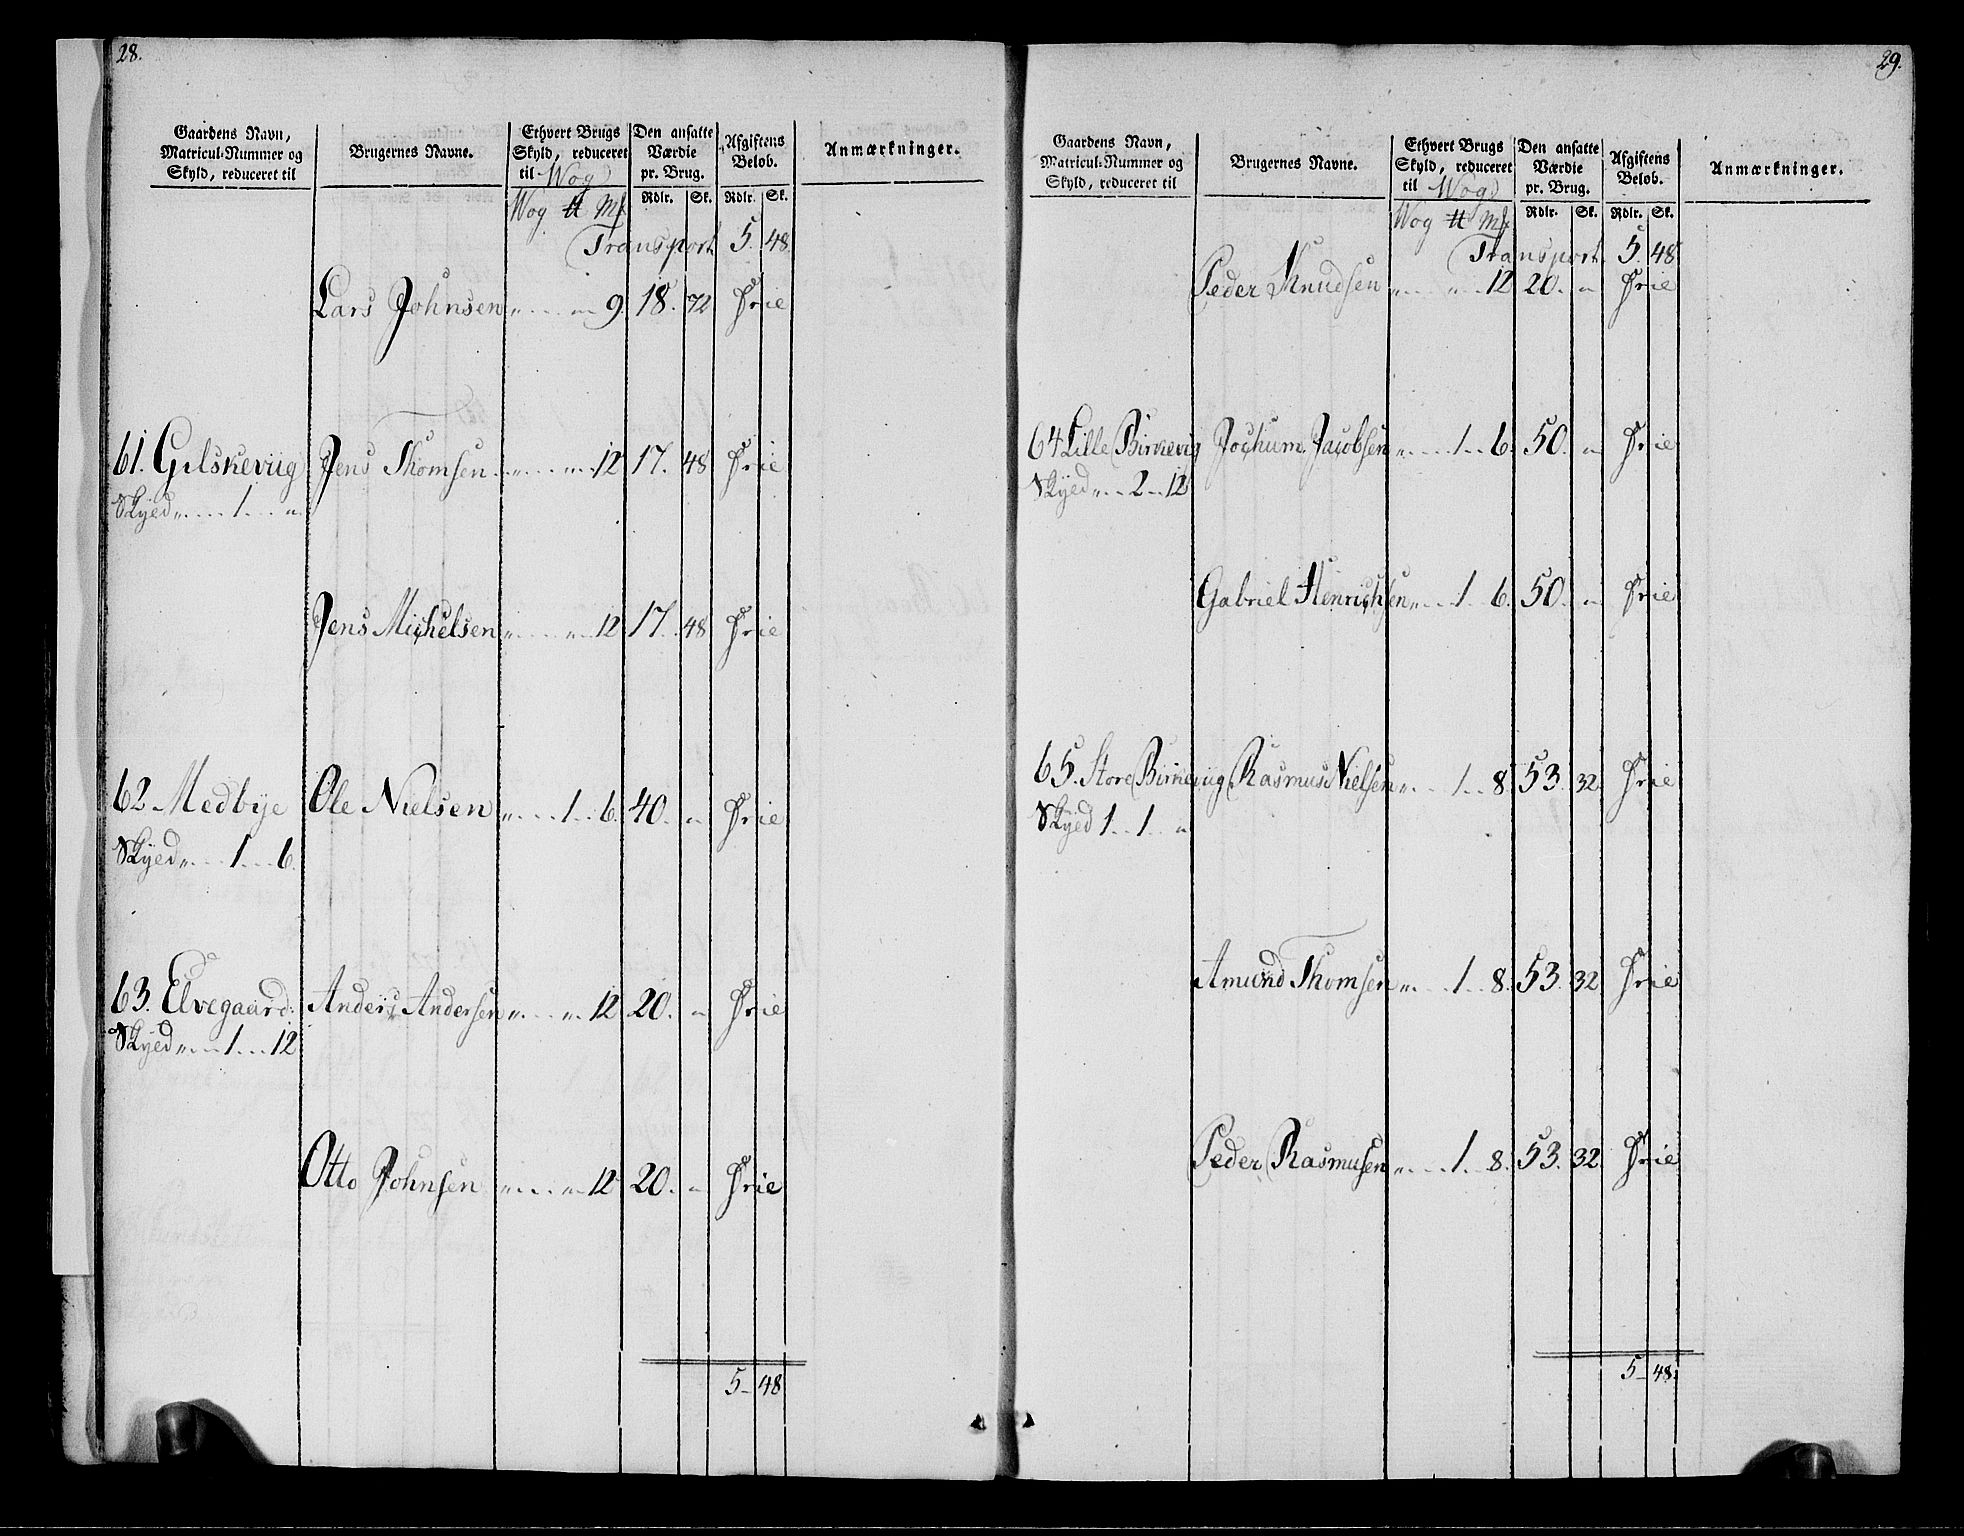 28.
Gaardens Navn, Matricul-Nummer og Skyld, reduceret til
Brugernes Navne.
Ethvert Brugs Skyld, reduceret til Wog
Den ansatte Værdie pr. Brug.
Afgiftens Beløb.
Anmærkninger.
Wog ℔ Mk Rdlr. Sk. Rdlr. Sk.
Transport 5. 48.
Lars Johnsen „ „ 9. 18. 72 Frie
61. Gilskeviig Jens Thomsen „ „ 12 17. 48 Frie
Skyed „ 1 „
Jens Michelsen „ „ 12 17. 48 Frie
62 Medbye Ole Nielsen „ 1. 6. 40. „ Frie
Skyed „ 1 6.
63. Elvegaard. Anders Andersen „ „ 12 20. „ Frie
Skyed „ 1 12
Otto Johnsen „ „ 12 20. „ Frie
5 48
29.
Gaardens Navn, Matricul-Nummer og Skyld, reduceret til
Brugernes Navne.
Ethvert Brugs Skyld, reduceret til Wog
Den ansatte Værdie pr. Brug.
Afgiftens Beløb.
Anmærkninger.
Wog ℔ Mk Rdlr. Sk. Rdlr. Sk.
Transport. 5. 48
Peder Knudsen „ „ 12 20. „ Frie
64 Lille Birkevig Jochum Jacobsen „ 1. 6. 50. „ Frie
Skyed „ 2 12
Gabriel Henrichsen „ 1 6. 50. „ Frie
65. Store Birkeviig Rasmus Nielsen „ 1. 8. 53. 32. Frie
Skyed 1 1 „
Amund Thomsen „ 1. 8. 53. 32. Frie
Peder Rasmusen „ 1. 8. 53. 32. Frie
5 48.